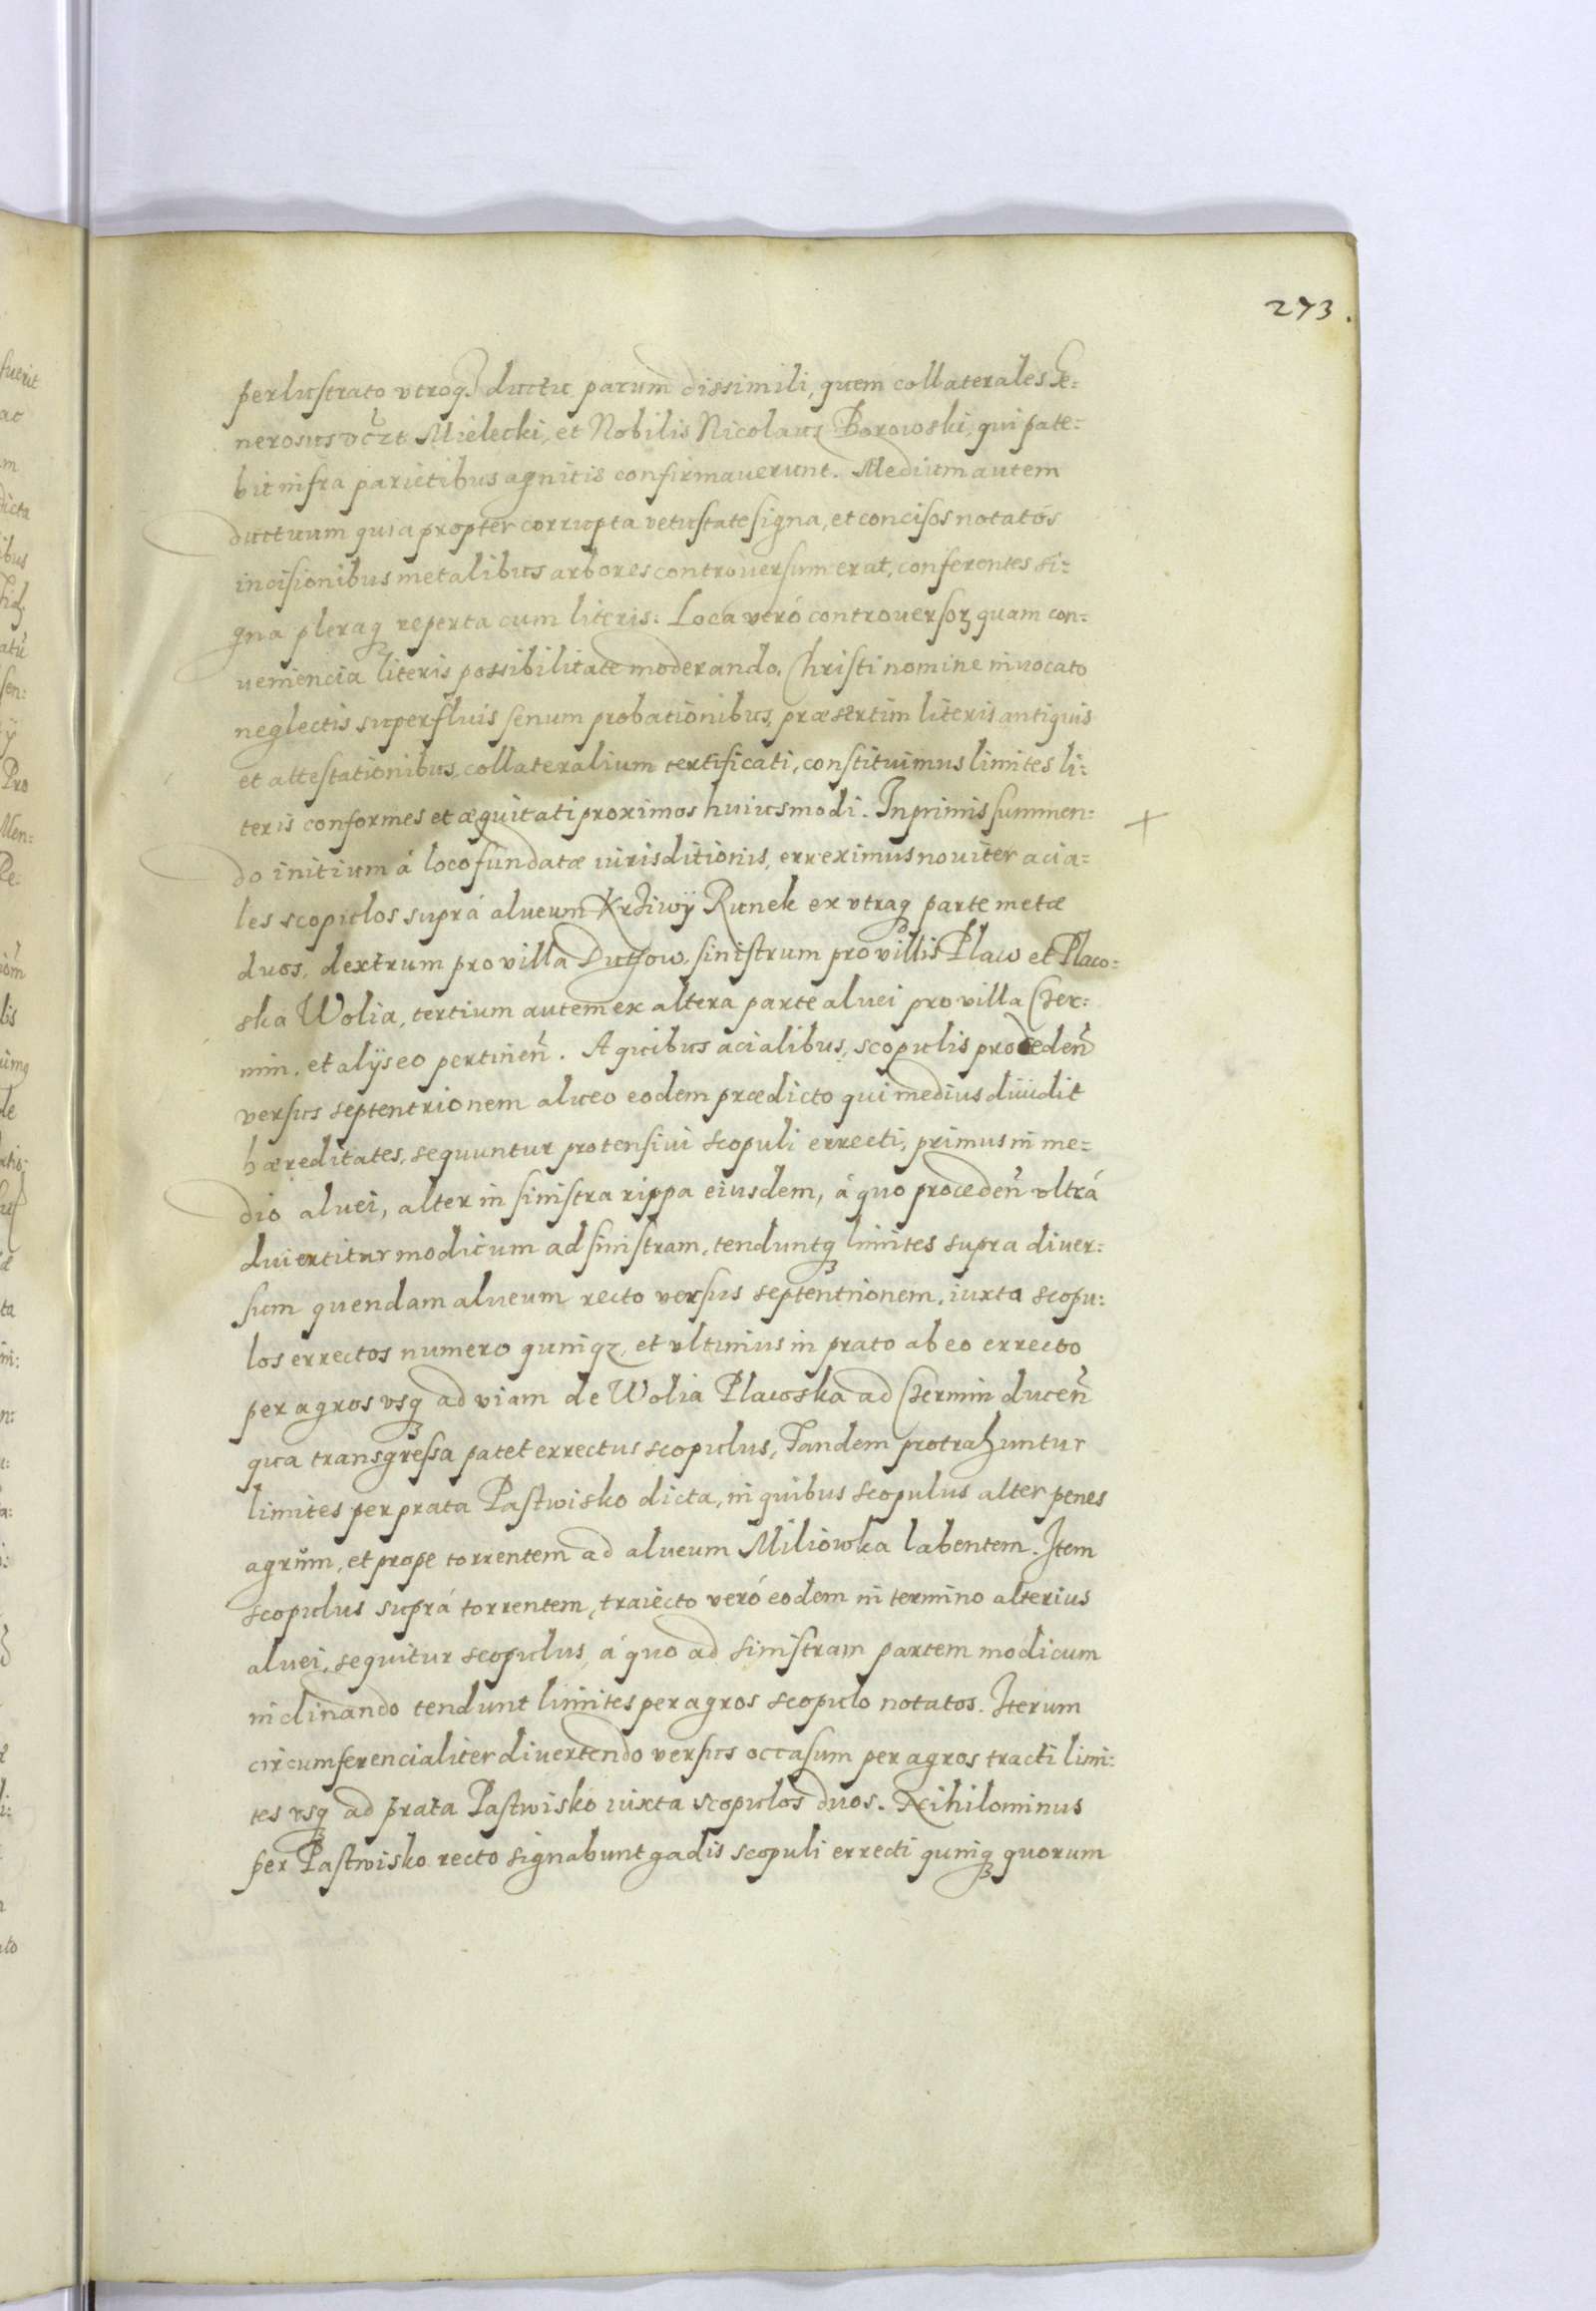 273.
perlustrato vtroq3 ductu parum dissimili, quem collaterales Ge:
nerosus Mielecki, et Nobilis Nicolaus Borowski, qui pate:
bit infra parietibus agnitis confirmauerunt. Medium autem
ductuum quia propter corrupta vetustate signa, et concisos notatos
incisionibus metalibus arbores controuersum erat, conferentes si:
gna pleraq3 reperta cum literis: Loca veró controuersoꝝ quam con:
ueniencia literis possibilitate moderando, Christi nomine inuocato
neglectis superfluis senum probationibus, præsertim literis antiquis
et attestationibus collateralium certificati, constituimus limites li:
teris conformes et æquitati proximos huiusmodi. Inprimis summen:
do initium á loco fundatæ iurisditionis, erreximus nouiter acia=
les scopulos suprá alueum Krziwÿ Runek ex vtraq3 parte metæ
duos, dextrum pro villa sinistrum pro villis Plaw et Plaw:
ska Wolia, tertium autem ex altera parte aluei pro villa Czer:
min, et alÿs eo pertinen̄. A quibus acialibus scopulis proceden̄
versus septentrionem alueo eodem prædicto qui medius diuidit
hæreditates, sequuntur protensiui scopuli errecti, primus in me=
dio aluei, alter in sinistra rippa eiusdem, á quo proceden̄ vltrá
diuertitur modicum ad sinistram, tenduntq3 limites supra diuer:
sum quendam alueum recto versus septentrionem, iuxta scopu:
los errectos numero quinq3, et vltimus in prato ab eo errecto
per agros vsq3 ad viam de Wolia Plawska ad Czermin ducen̄
qua transgressa patet errectus scopulus, Tandem protrahuntur
limites per prata Pastwisko dicta, in quibus scopulus alter penes
agrum, et prope torrentem ad alueum Miliowka labentem. Item
scopulus suprá torrentem, traiecto veró eodem in termino alterius
aluei, sequitur scopulus, á quo ad sinistram partem modicum
inclinando tendunt limites per agros scopulo notatos. Iterum
circumferencialiter diuertendo versus occasum per agros tracti limi:
tes vsq3 ad prata Pastwisko iuxta scopulos duos. Nihilominus
per Pastwisko recto signabunt gadis scopuli errecti quinq3 quorum